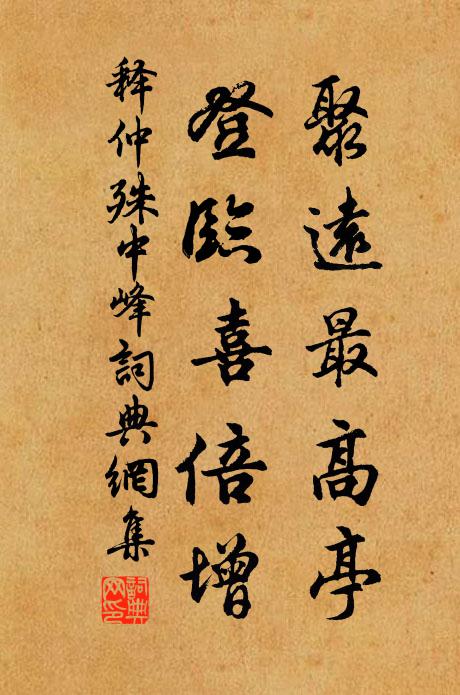 聚遠最高亭
登臨喜倍增
释仲殊中峰詞典網集
詞典網印